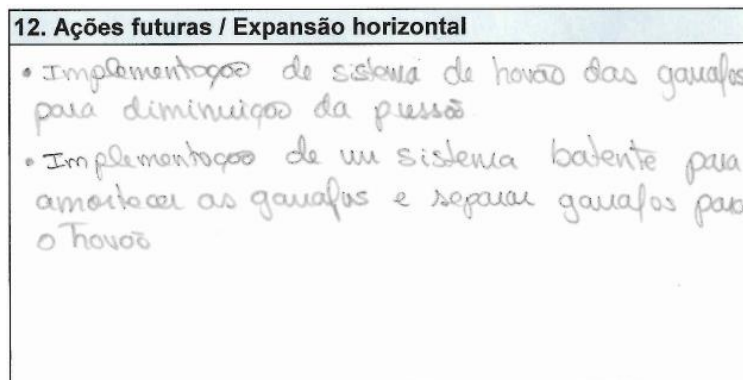 12. Ações futuras / Expansão horizontal
• Implementação de sistema de das garrafas
para diminuição da pressão
• Implementação de um sistema batente para
amortecer as garrafas e separar garrafas para
o